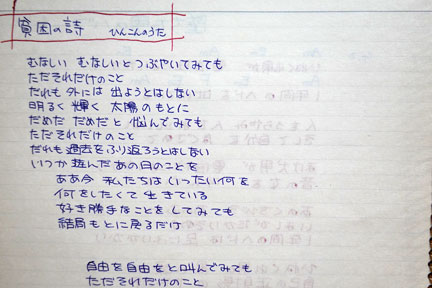 貧困の詩 ひんこんのうた
むなしい むなしいとつぶやいてみても
ただそれだけのこと
だれも 外には 出ようとはしない
明るく 輝く 太陽のもとに
だめだ だめだと 悩んでみても
ただそれだけのこと
だれも過去をふり返ろうとはしない
いつか 遊んだあの日のことを
ああ今 私たちは いったい何を
何をしたくて 生きている
好き勝手なことを してみても
結局もとに戻るだけ
自由を自由をと叫んでみても
ただそれだけのこと